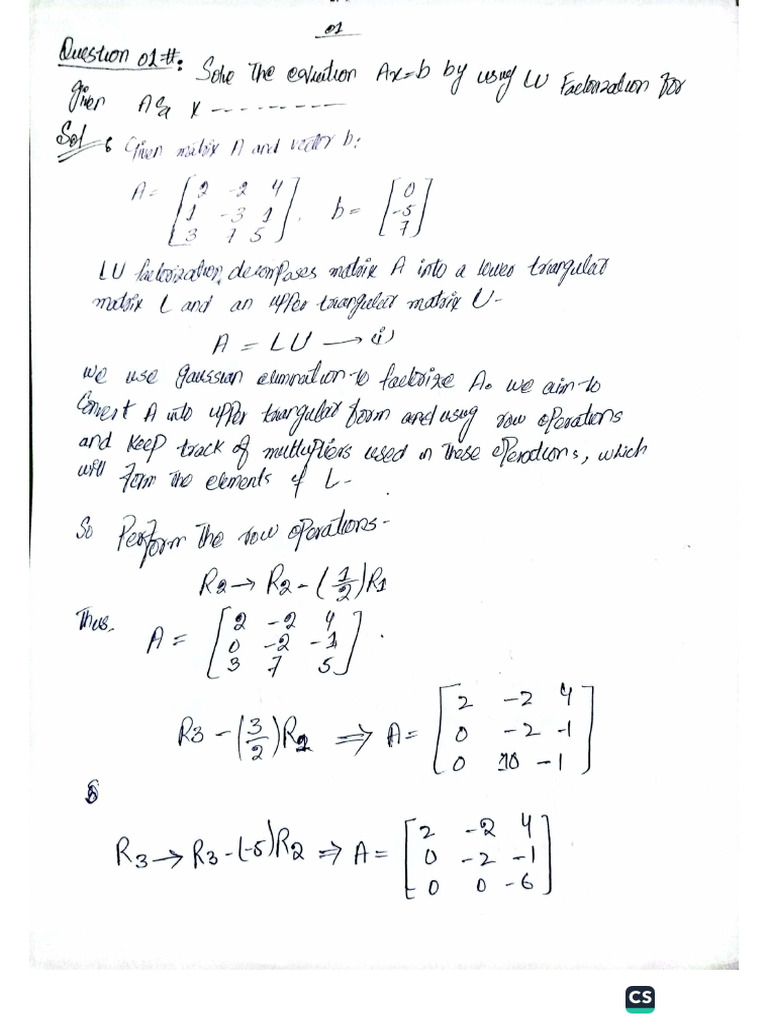 01
Question 01#: Solve The equation Ax=b by using LU Factorization for
given A & x ----------
Sol : Given matrix A and vector b:
A = [2 -2 4
1 -3 1
3 7 5], b = [0
-5
7]
LU factorization, decomposes matrix A into a lower triangular
matrix L and an upper triangular matrix U-
A = LU → (i)
we use gaussian elimination to factorize A. we aim to
Convert A into upper triangular form and using row operations
and keep track of multipliers used in these operations, which
will form the elements of L-
So Perform The row operations-
R2 → R2 - (1/2)R1
Thus,
A = [2 -2 4
0 -2 -1
3 7 5].
R3 - (3/2)R1 ⇒ A = [2 -2 4
0 -2 -1
0 10 -1]
R3 → R3 - (-5)R2 ⇒ A = [2 -2 4
0 -2 -1
0 0 -6]
CS